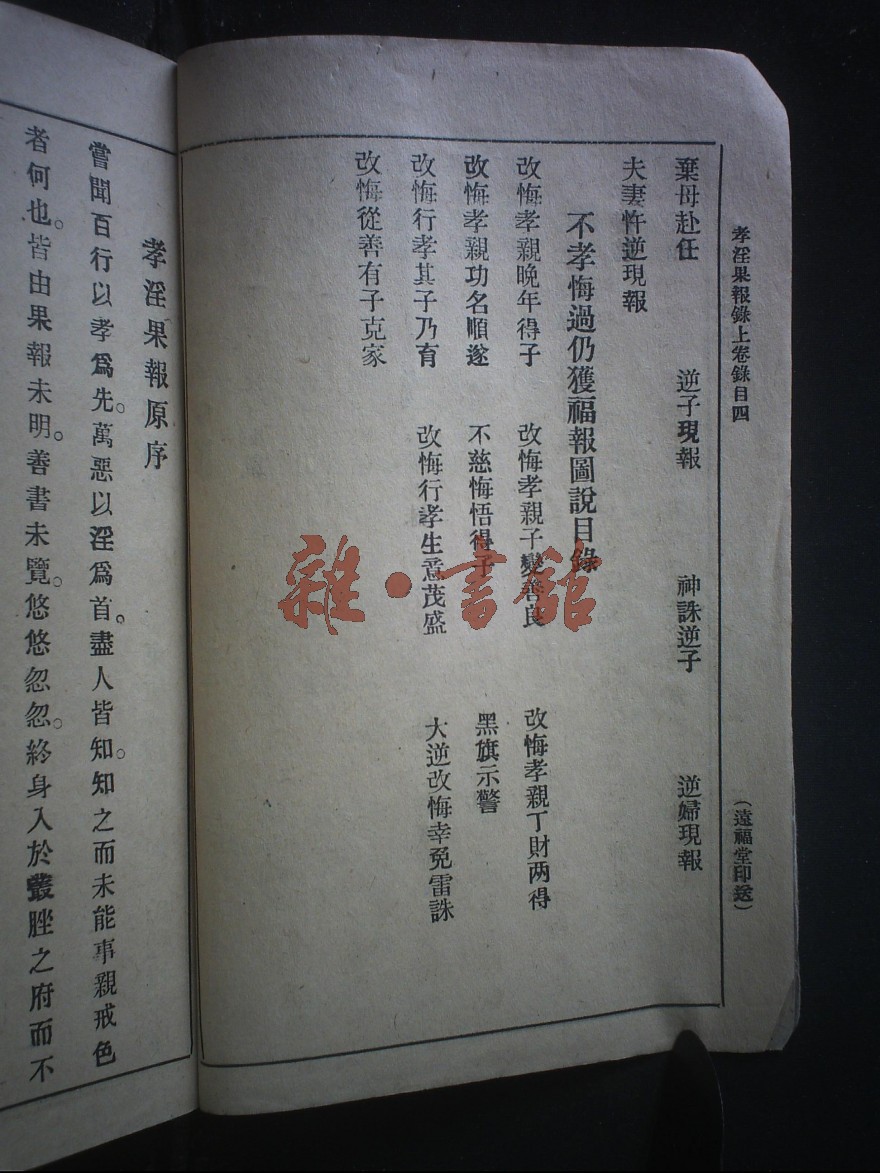 孝淫果報錄上卷錄目四
（遠福堂印送）
棄母赴任 逆子現報 神誅逆子 逆婦現報
夫妻忤逆現報
不孝悔過仍獲福報圖說目錄
改悔孝親晚年得子 改悔孝親子變善良 改悔孝親丁財两得
改悔孝親功名順遂 不慈悔悟得子 黑旗示警
改悔行孝其子乃育 改悔行孝生意茂盛 大逆改悔幸免雷誅
改悔從善有子克家
孝淫果報原序
嘗聞百行以孝爲先。萬惡以淫爲首。盡人皆知。知之而未能事親戒色
者何也。皆由果報未明。善書未覽。悠悠忽忽。終身入於叢脞之府而不
雜·書館